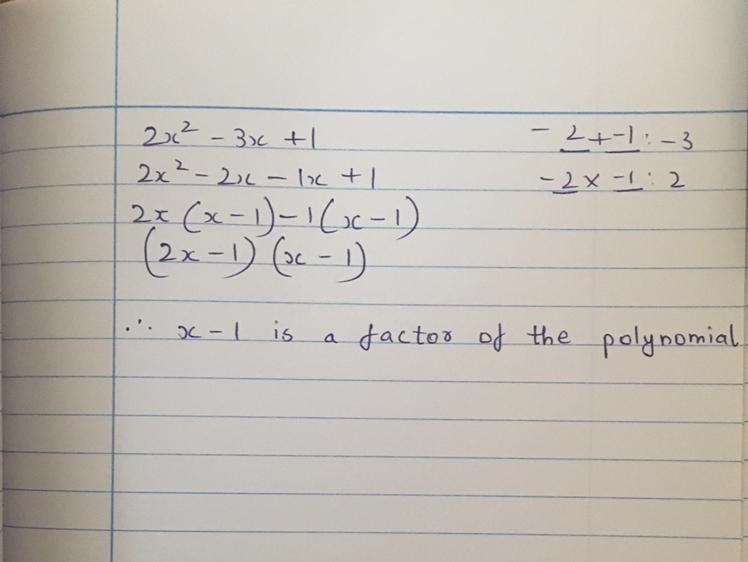 2x² - 3x + 1
- 2 + -1 : -3
2x² - 2x - 1x + 1
- 2 x -1 : 2
2x (x - 1) - 1 (x - 1)
(2x - 1) (x - 1)
∴ x - 1 is a factor of the polynomial